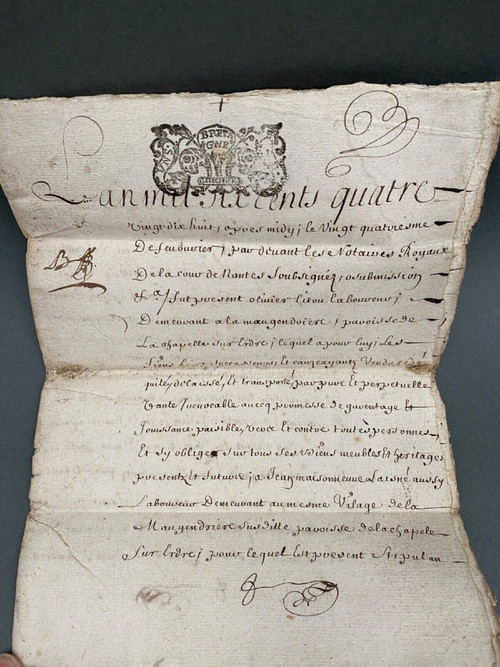 BRETAGNE
L'an mil six cents quatre
vingt dix huit, apres midy, le vingt quatriesme
De feubvrier, par devant les Notaires Royaux
De la cour de Nantes Soubsignez, o submission
&a/ fut present olivier litou laboureur,
Demeurant a la maugendriere, paroisse de
La chapelle sur Erdre, lequel a pour luy, Les
Siens hoirs successeurs, Et cauzeayantz Vendu cedé
quitey delaissé, Et transporté, par pure Et perpetuelle
Vante Irevocable avecq promesse de guarentage Et
Jouissance paisible, vers Et contre toutes personnes,
Et sy oblige sur tous ses biens meubles Et heritages
presents Et futurs, a Jean maisonneuve Laisné aussy
Laboureur Demeurant au mesme Vilage de la
Maugendriere susditte paroisse de la chapele
Sur Erdre, pour lequel Est present Stipulan